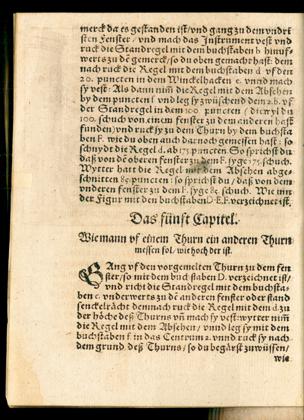 merck da es gestanden ist/vnd gang zu dem vndrē
sten Fenster/vnnd mach das Jnstrument vest vnd
ruck die Standregel mit dem̄ buchstaben b hinuf⸗
werts zu dē gemerck/so du oben gemacht hast: dem
nach ruck die Regel mit den buchstaben d vf den
20. puncten in dem Winckelhacken c. vnnd mach
sy vest: Als dann nim̄ die Regel mit dem Absehen
by dem puncten f vnd leg sy zwüschend dem 2.b. vf
der Standregel in dem 100. puncten (diewyl du
100. schuch von einem fenster zu dem anderen hast
funden) vnd ruck sy zu dem Thurn by dem buchsta
ben F. wie du oben auch darnoch gemessen hast: so
schnydt die Regel d. ab 75 puncten So sprichst du
daß von dē oberen fenster zu dem F. syge 75. schuch.
Wytter hart die Regel mit dem Absehen abge⸗
schnitten 85. puncten: so sprichst du/daß von dem
vnderen fenster zu dem F. syge 85. schuch. Wie inn
der Figur mit den buchstaben D.E.F. verzeichnet ist.
Das fünfft Capitel.
Wie mann vf einem Thurn ein anderen Thurn
messen sol/wie hoch der ist.
Gang vf den vorgemelten Thurn zu dem fen
ster/so mit dem buchstaben D. verzeichnet ist/
vnd richt die Standregel mit dem buchsta⸗
ben c vnderwerts zu dē anderen fenster oder stand
senckelrächt demnach ruck die Regel mit dem d zu
der höche deß Thurns vn̄ mach sy vest: wytter nim̄
die Regel mit dem Absehen/vnnd leg sy mit dem
buchstaben f. in das Centrum 2. vnnd ruck sy nach
dem grund deß Thurns/so du begärst zu wüssen/
wie